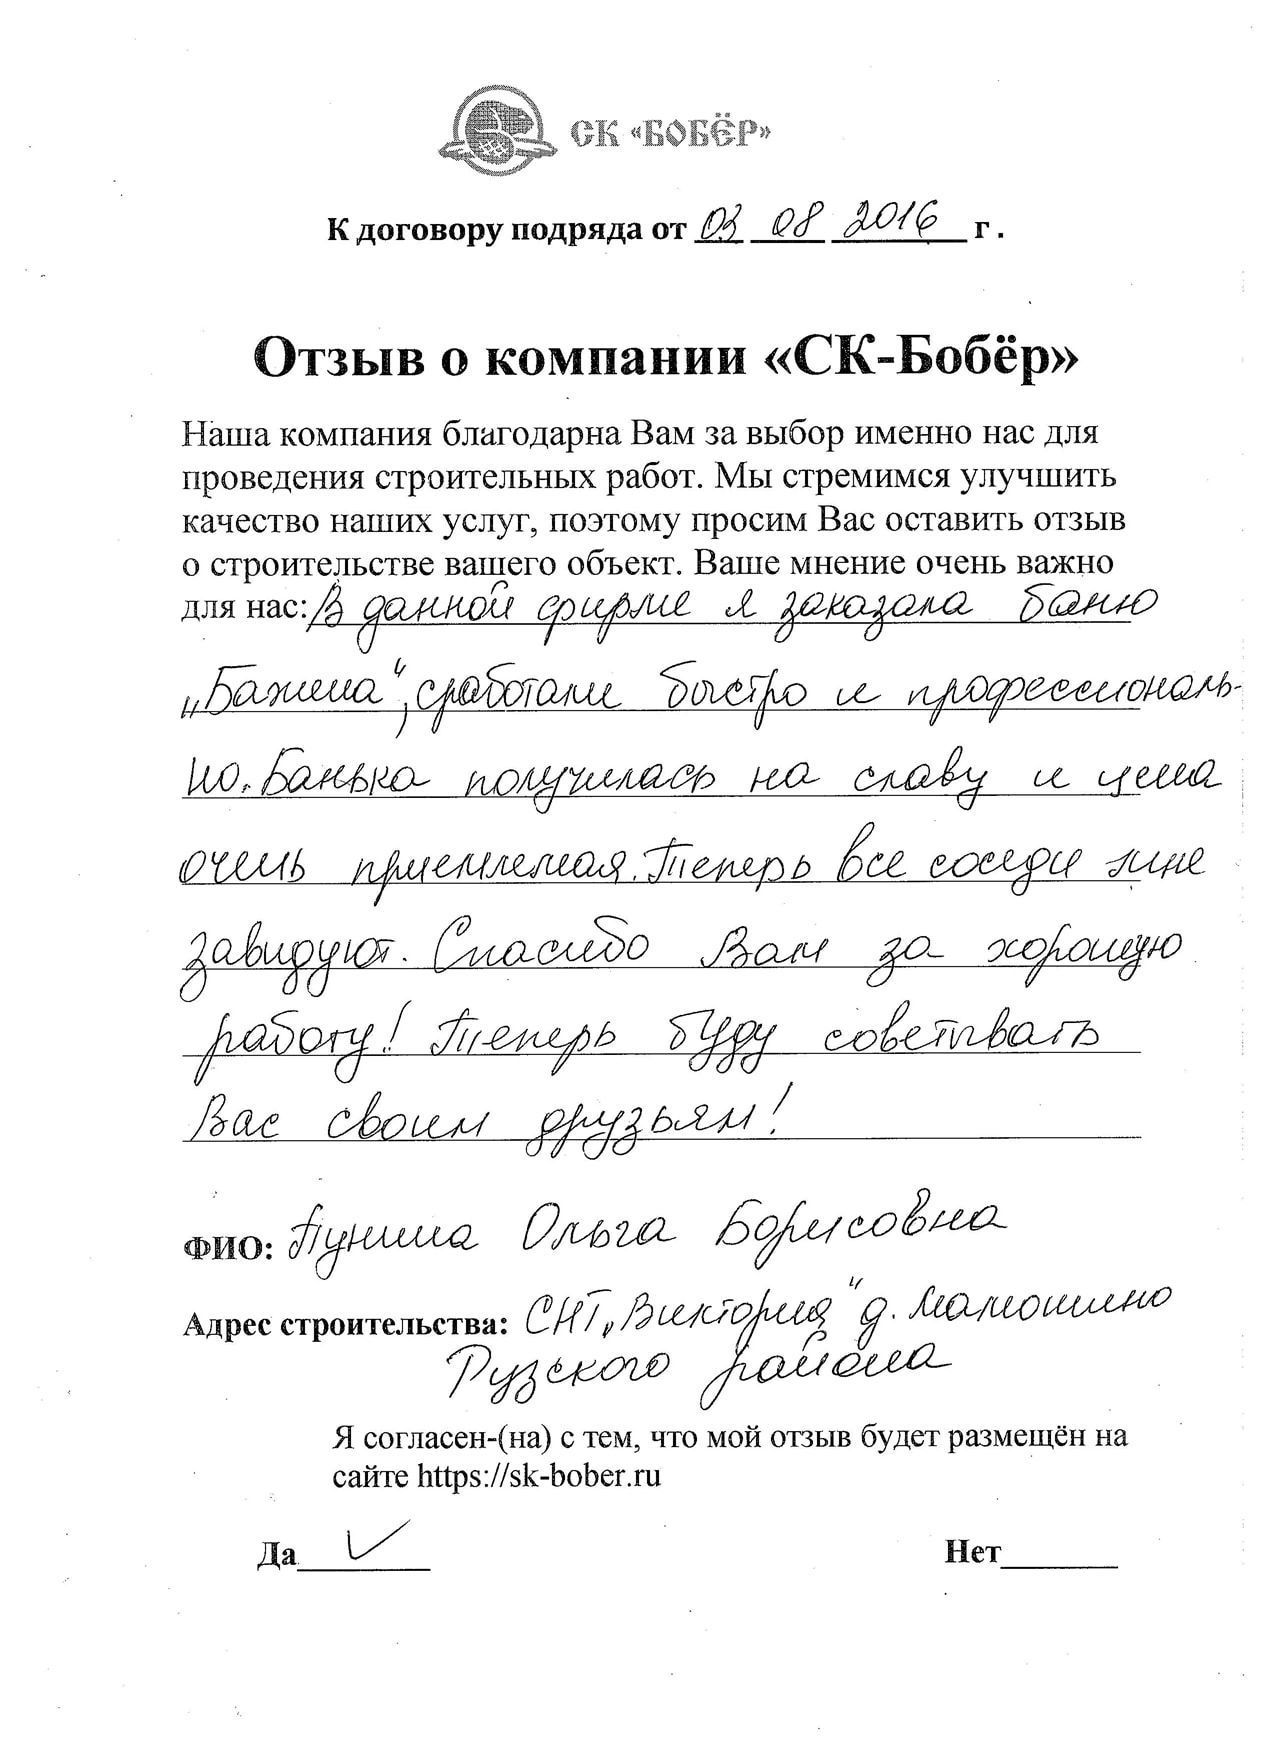 СК «БОБЁР»
К договору подряда от 03 08 2016 г .
Отзыв о компании «СК-Бобёр»
Наша компания благодарна Вам за выбор именно нас для
проведения строительных работ. Мы стремимся улучшить
качество наших услуг, поэтому просим Вас оставить отзыв
о строительстве вашего объект. Ваше мнение очень важно
для нас: В данной фирме я заказала баню
„Бажена", сработали быстро и профессиональ-
но. Банька получилась на славу и цена
очень приемлемая. Теперь все соседи мне
завидуют. Спасибо Вам за хорошую
работу! Теперь буду советывать
Вас своим друзьям!
ФИО: Пунина Ольга Борисовна
Адрес строительства: СНТ „Виктория" д. Мамошино
Рузского района
Я согласен-(на) с тем, что мой отзыв будет размещён на
сайте https://sk-bober.ru
Да ✓ Нет